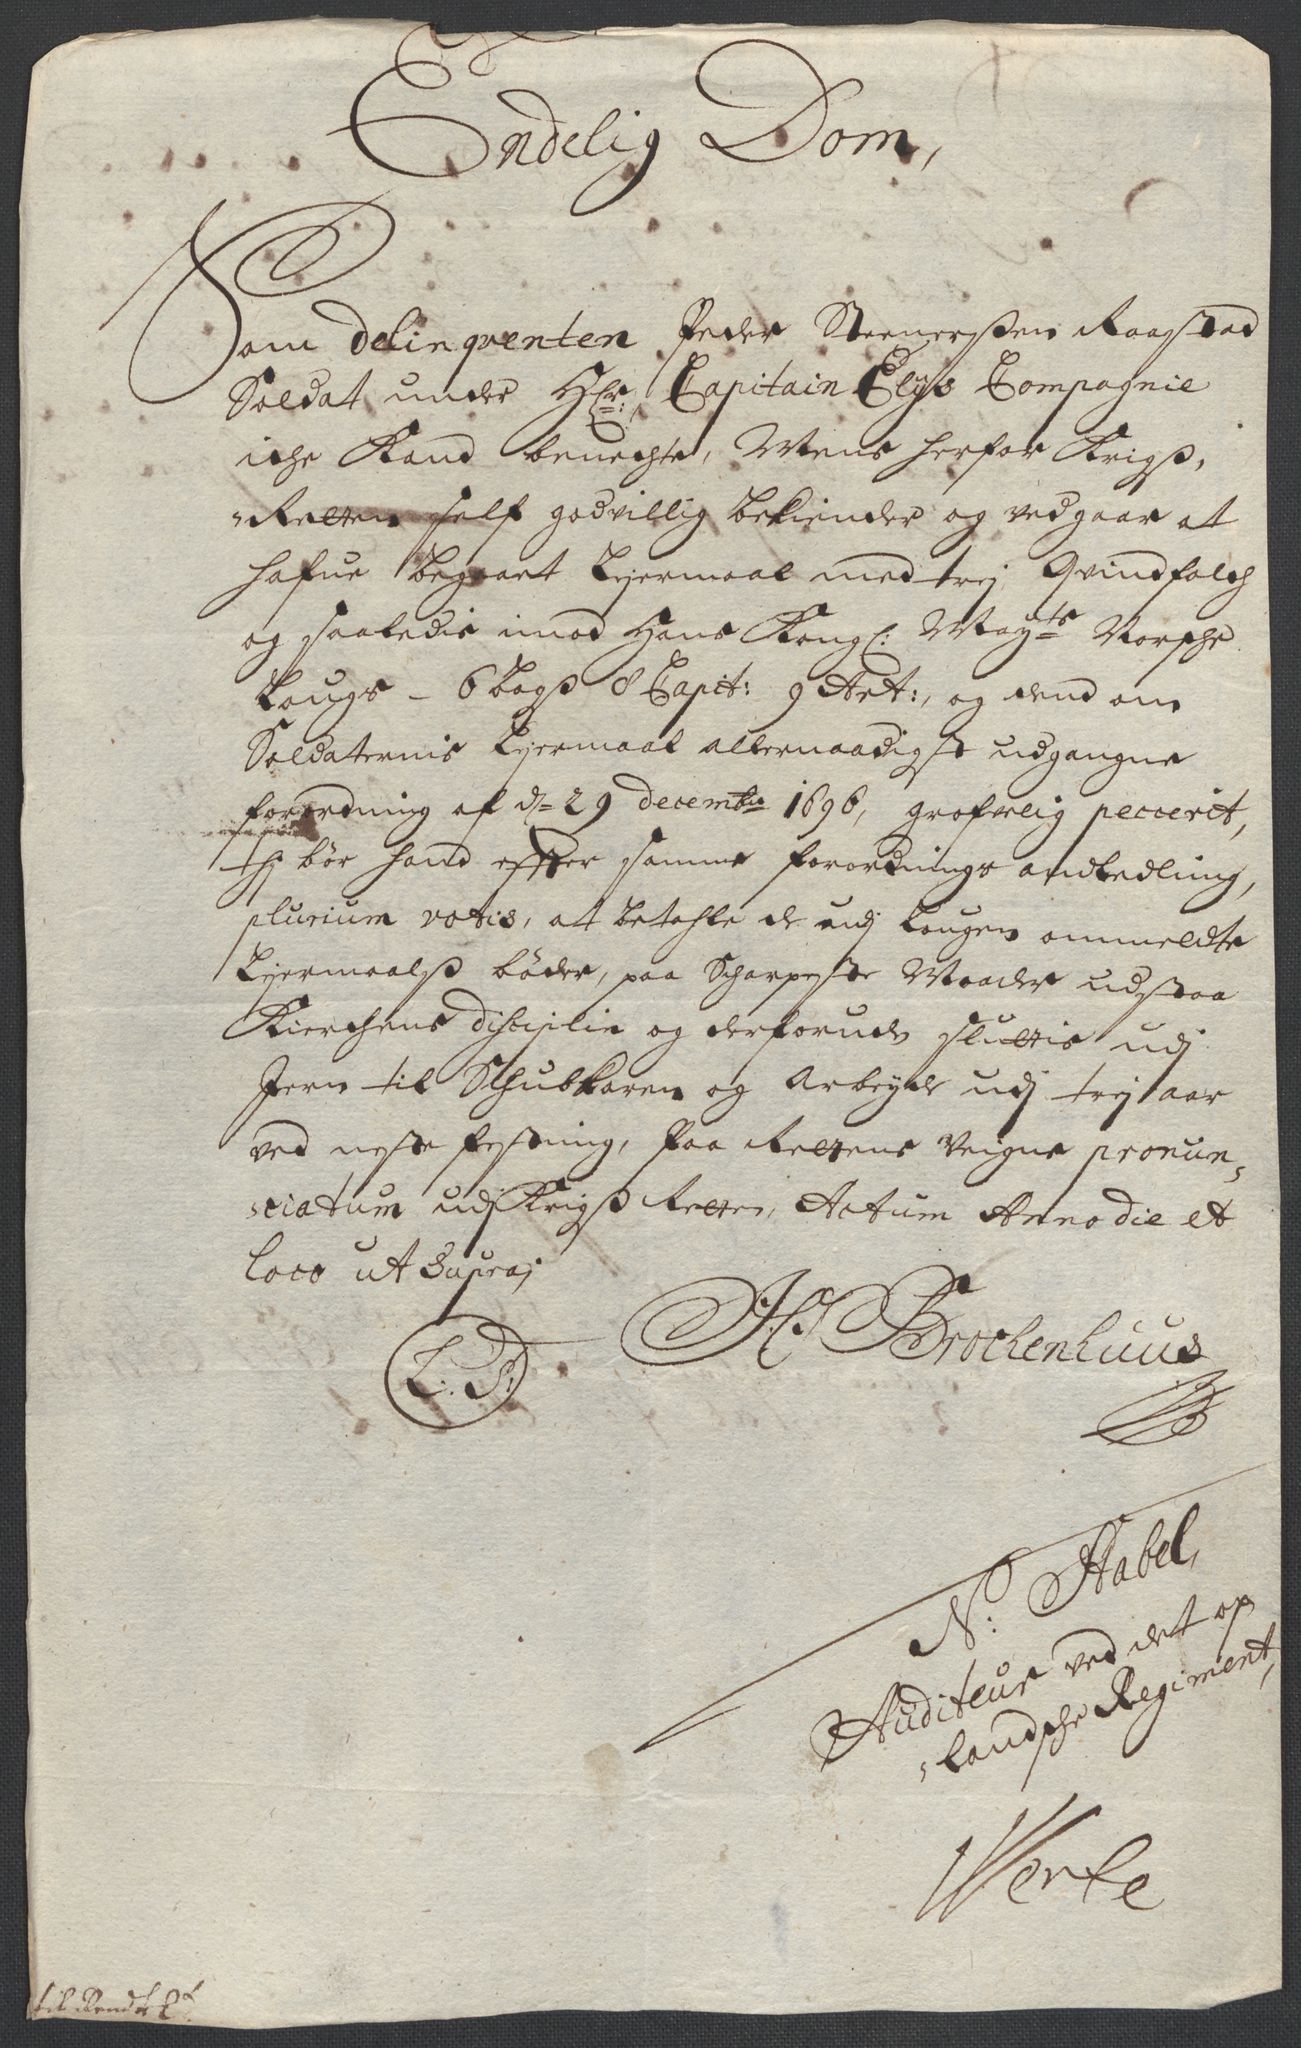 Endelig Dom,
Som delinqventen Peder Steenersen Raastad
Soldat under Hr: Capitain Elys Compagnie
iche Kand benechte, Mens herfor Krigs,
Retten self godvillig bekiender og vedgaar at
hafue begaaet Lejermaal med trej Qvindfolch
og saaledis imod Hans Kongl: Mayts Norsche
Lougs - 6 bogs 8 Capit: 9 Art:, og dend om
Soldaternis Lejermaal allernaadigst udgangne
forordning af d. 29 decembr 1696, grofvelig peccerit,
thj bør hand effter samme forordnings anledling,
plurium votis, at betahle de udj Lougen ommeldte
Lejermaals bøder, paa Scharpeste Maader udstaa
Kierchens disciplin og derforuden sluttis udj
Jern til Schubkaren og Arbeyde udj trej aar
ved neste festning, Paa Rettens Veigne pronun-
ciatum udj Krigs Retten, Actum Anno die et
loco ut supraj
L. S. H Brochenhuus
N: Stabel,
Auditeur ved det op
landsche Regiment,
Werte
til